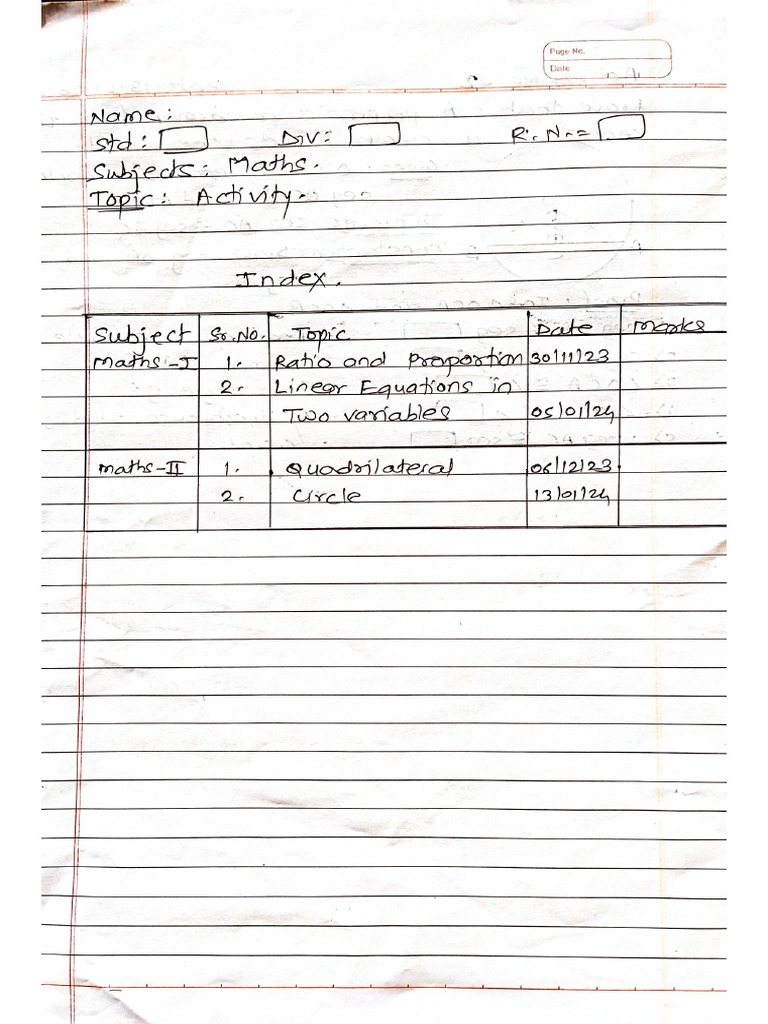 Page No.
Date
Name:
Std: Div: R. No. =
Subjects: Maths.
Topic: Activity.
Index.
Subject Sr. No. Topic Date Marks
Maths-I 1. Ratio and Proportion 30/11/23
2. Linear Equations in
Two variables 05/01/24
maths-II 1. Quadrilateral 06/12/23
2. Circle 13/01/24